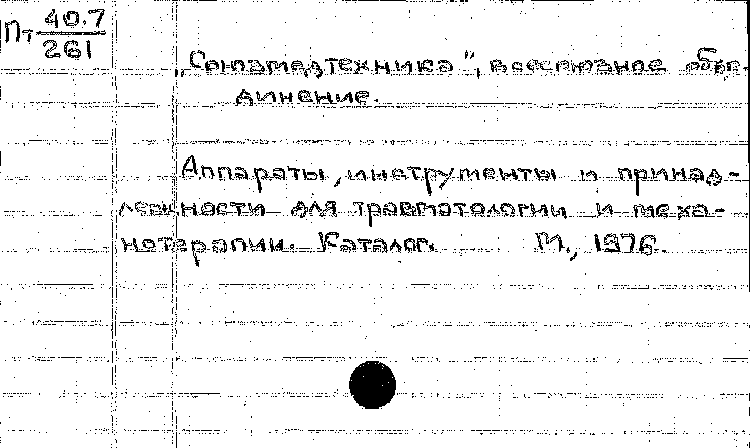 Пт 40.7
261
„Союзмедтехника", всесоюзное объе-
динение.
Аппараты, инструменты и принад-
лежности для травматологии и меха-
нотерапии. Каталог. М., 1976.